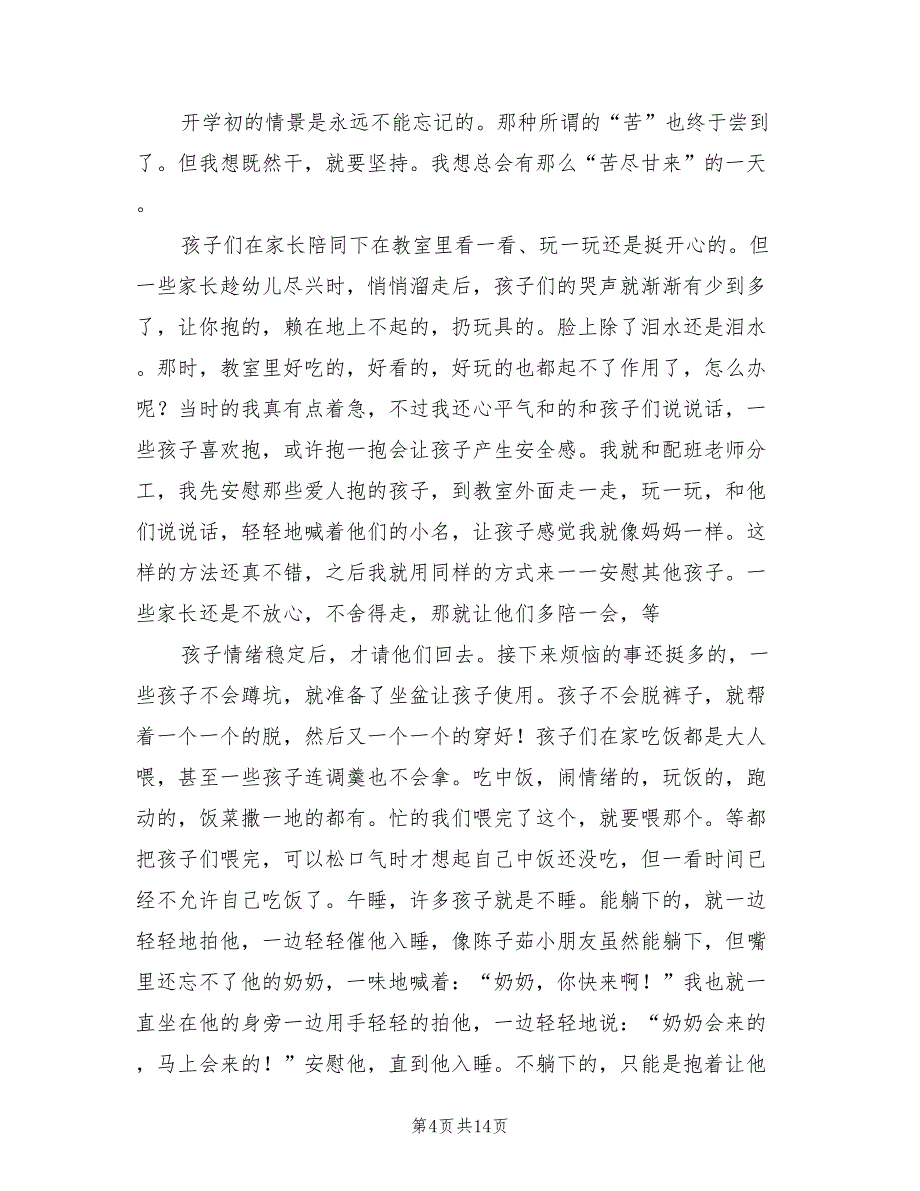 开学初的情景是永远不能忘记的。那种所谓的“苦”也终于尝到
了。但我想既然干，就要坚持。我想总会有那么“苦尽甘来”的一天
。
孩子们在家长陪同下在教室里看一看、玩一玩还是挺开心的。但
一些家长趁幼儿尽兴时，悄悄溜走后，孩子们的哭声就渐渐有少到多
了，让你抱的，赖在地上不起的，扔玩具的。脸上除了泪水还是泪水
。那时，教室里好吃的，好看的，好玩的也都起不了作用了，怎么办
呢？当时的我真有点着急，不过我还心平气和的和孩子们说说话，一
些孩子喜欢抱，或许抱一抱会让孩子产生安全感。我就和配班老师分
工，我先安慰那些爱人抱的孩子，到教室外面走一走，玩一玩，和他
们说说话，轻轻地喊着他们的小名，让孩子感觉我就像妈妈一样。这
样的方法还真不错，之后我就用同样的方式来一一安慰其他孩子。一
些家长还是不放心，不舍得走，那就让他们多陪一会，等
孩子情绪稳定后，才请他们回去。接下来烦恼的事还挺多的，一
些孩子不会蹲坑，就准备了坐盆让孩子使用。孩子不会脱裤子，就帮
着一个一个的脱，然后又一个一个的穿好！孩子们在家吃饭都是大人
喂，甚至一些孩子连调羹也不会拿。吃中饭，闹情绪的，玩饭的，跑
动的，饭菜撒一地的都有。忙的我们喂完了这个，就要喂那个。等都
把孩子们喂完，可以松口气时才想起自己中饭还没吃，但一看时间已
经不允许自己吃饭了。午睡，许多孩子就是不睡。能躺下的，就一边
轻轻地拍他，一边轻轻催他入睡，像陈子茹小朋友虽然能躺下，但嘴
里还忘不了他的奶奶，一味地喊着：“奶奶，你快来啊！”我也就一
直坐在他的身旁一边用手轻轻的拍他，一边轻轻地说：“奶奶会来的
，马上会来的！”安慰他，直到他入睡。不躺下的，只能是抱着让他
第4页共14页